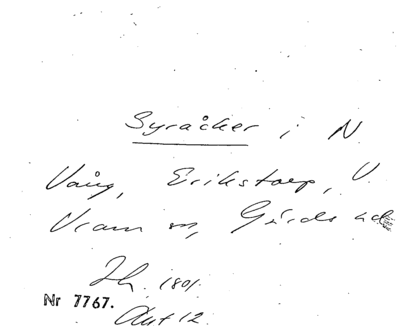 Syråker i N
Vång, Erikstorp, V
Vram sn, Gärds hd
Jh. 1801.
Nr 7767.
Akt 12.